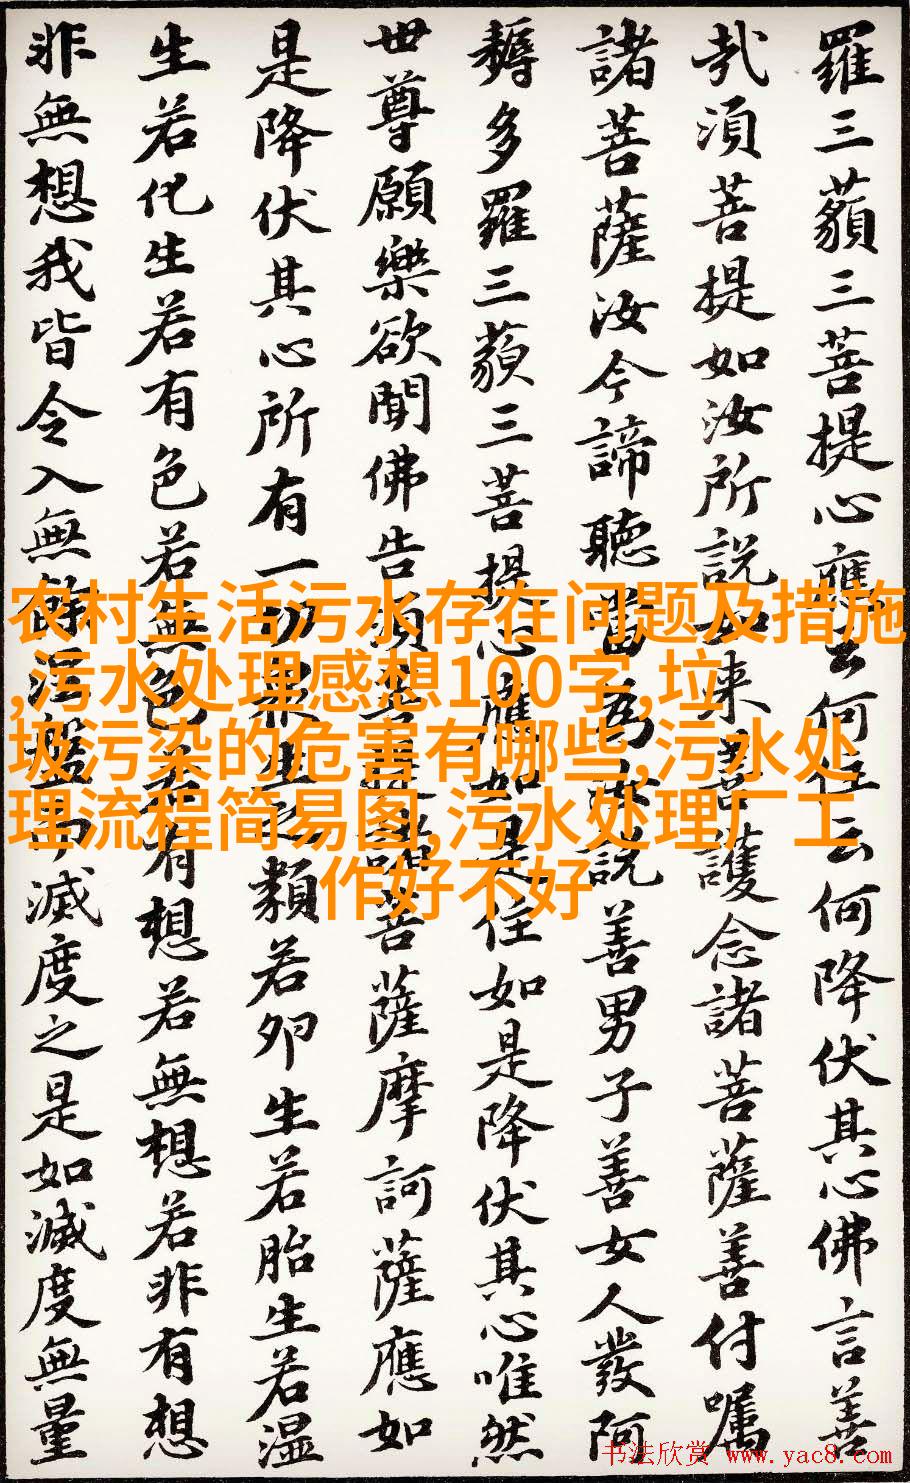 羅三藐三菩提心應云何住云何降伏其心佛言善
哉須菩提如汝所說如來善護念諸菩薩善付囑
諸菩薩汝今諦聽當為汝說善男子善女人發阿
耨多羅三藐三菩提心應如是住如是降伏其心唯然
世尊願樂欲聞佛告須菩提諸菩薩摩訶薩應如
是降伏其心所有一切眾生之類若卵生若胎生若湿
生若化生若有色若無色若有想若無想若非有想
非無想我皆令入無餘涅槃而滅度之是如滅度無量
农村生活污水存在问题及措施
,污水处理感想100字,垃
圾污染的危害有哪些,污水处
理流程简易图,污水处理厂工
作好不好
书法欣赏 www.yac8.com